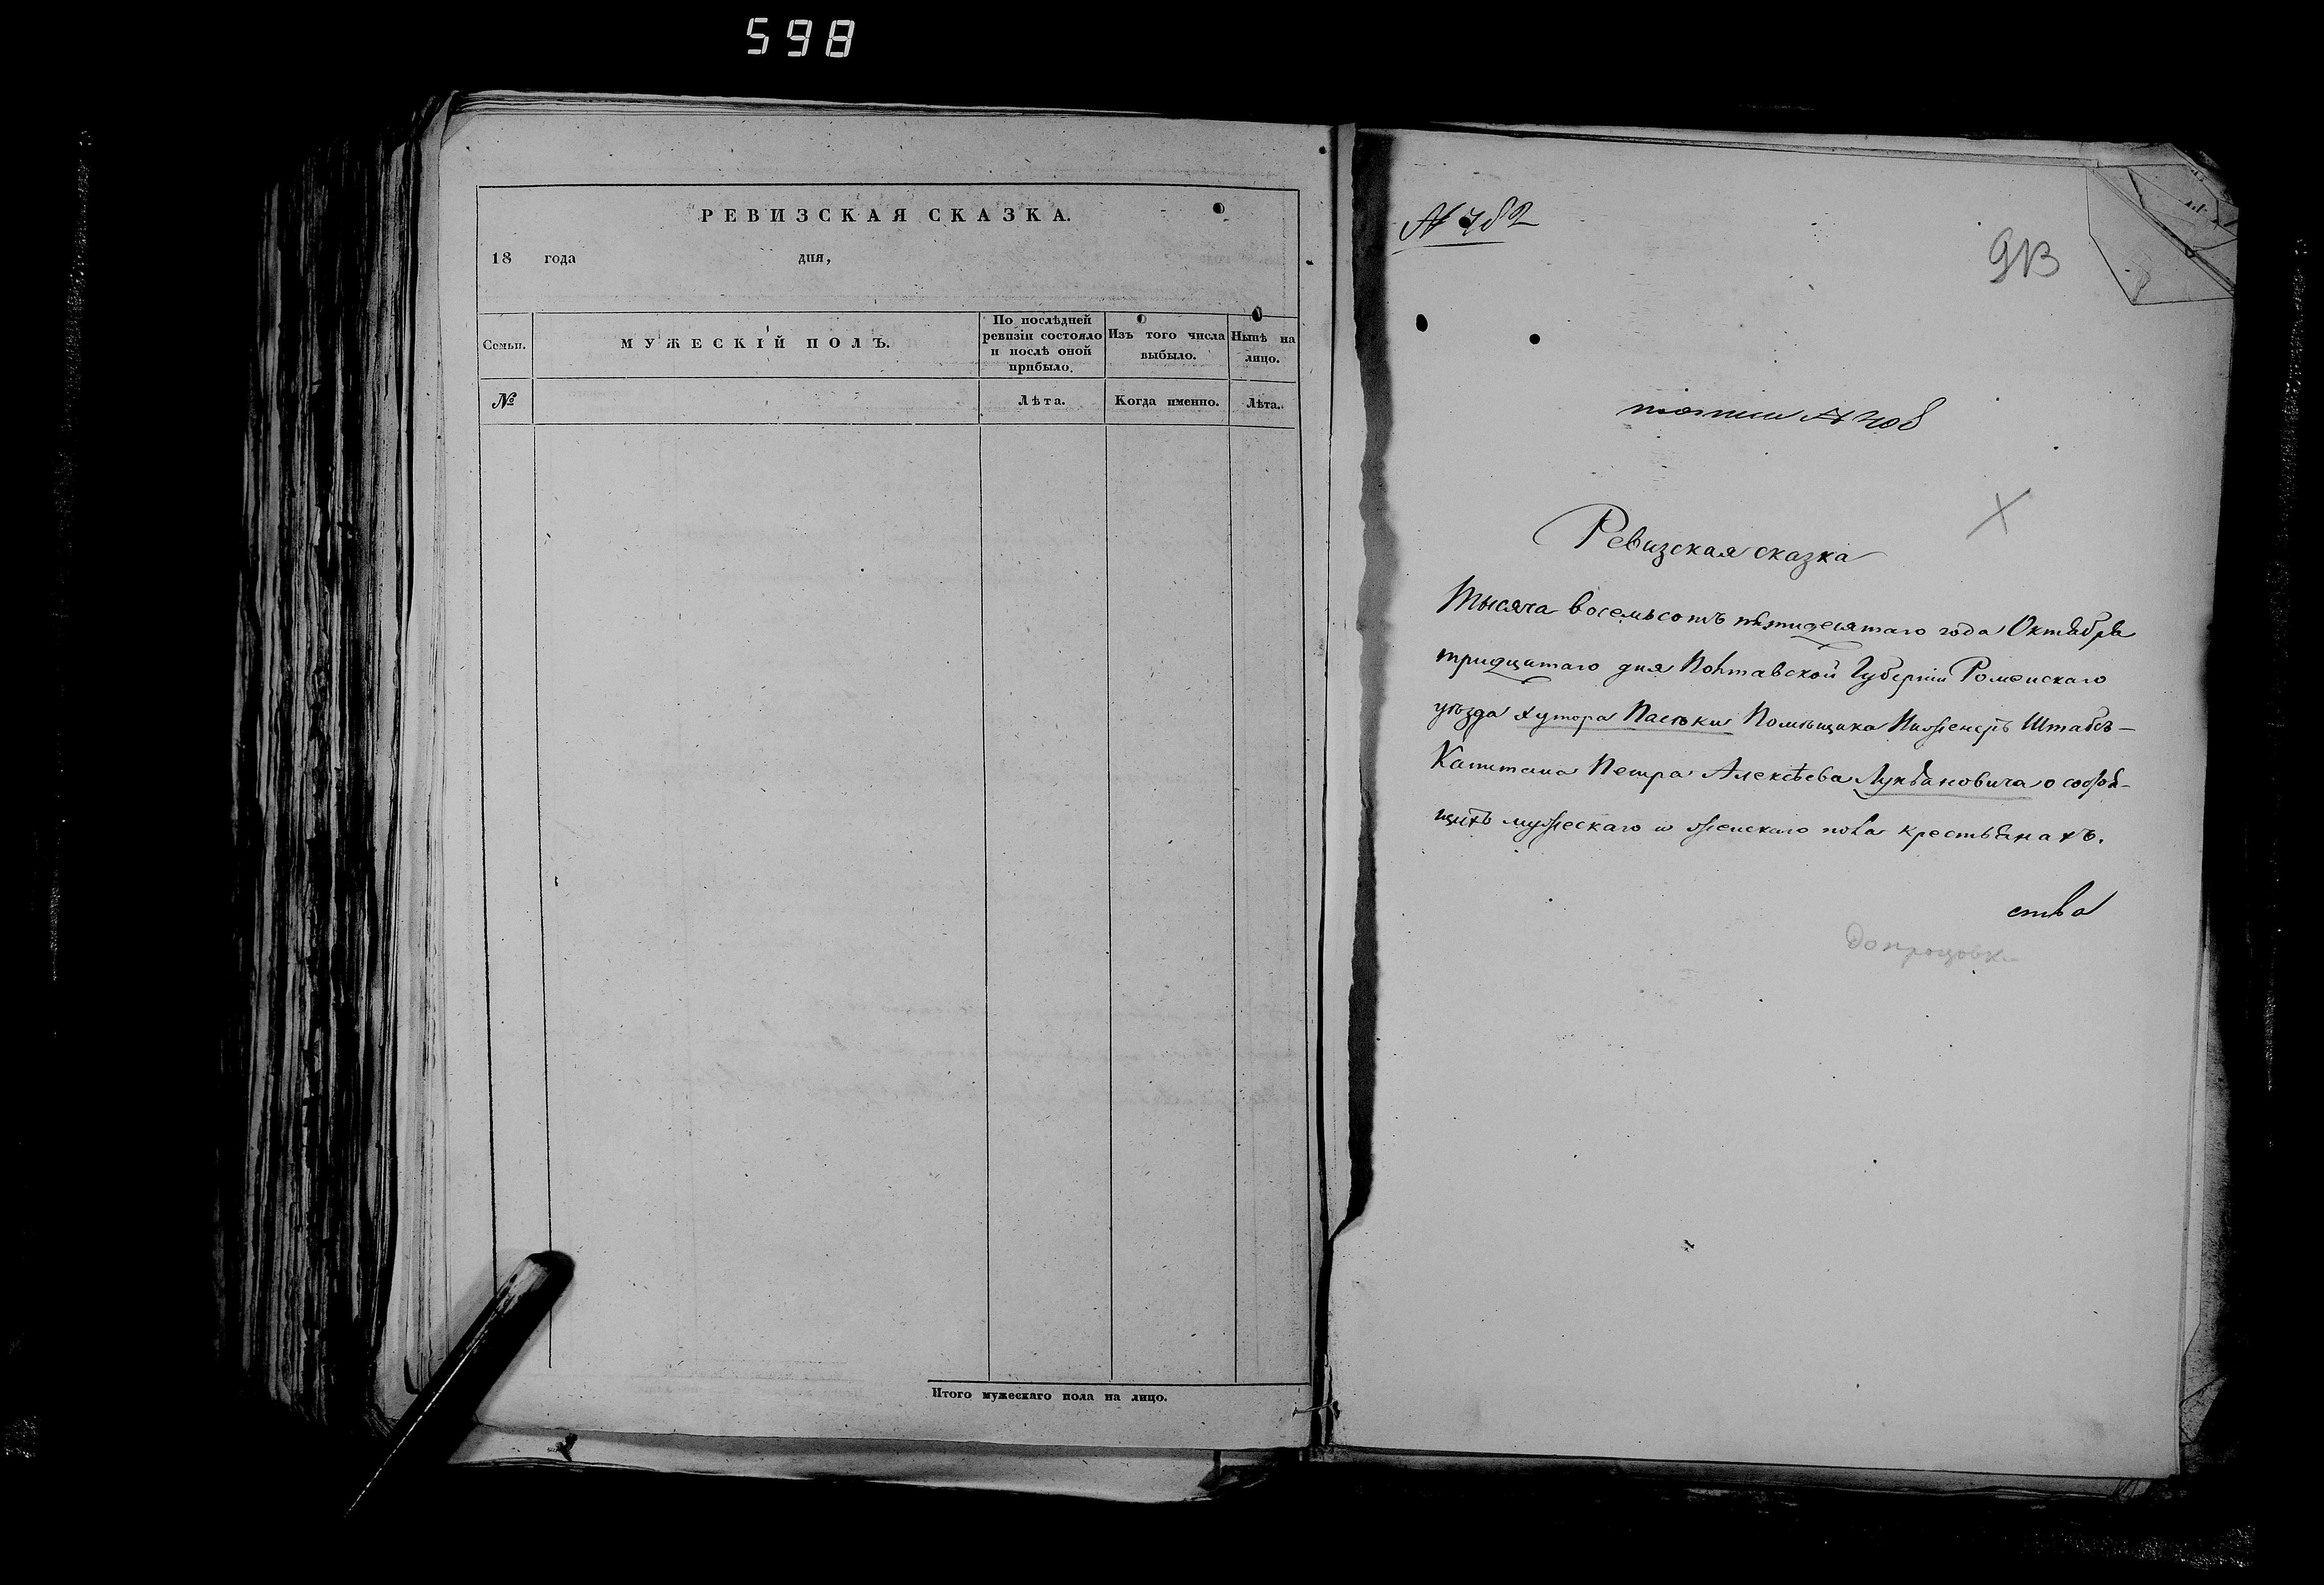 598
РЕВИЗСКАЯ СКАЗКА.
18 года дня,
Семьи.
МУЖЕСКІЙ ПОЛЪ.
По послѣдней
ревизіи состояло
и послѣ оной
прибыло.
Изъ того числа
выбыло.
Нынѣ на
лицо.
№
Лѣта.
Когда именно.
Лѣта.
Итого мужескаго пола на лицо.
913
Ревизская сказка
Тысяча восемьсотъ пятидесятаго года Октября
тридцатаго дня Полтавской Губерніи Роменскаго
уѣзда хутора Пасѣки Помѣщика Инженеръ Штабсъ-
Капитана Петра Алексѣева Лукьановича о состоя-
щихъ мужескаго и женскаго пола крестьянахъ.
ства